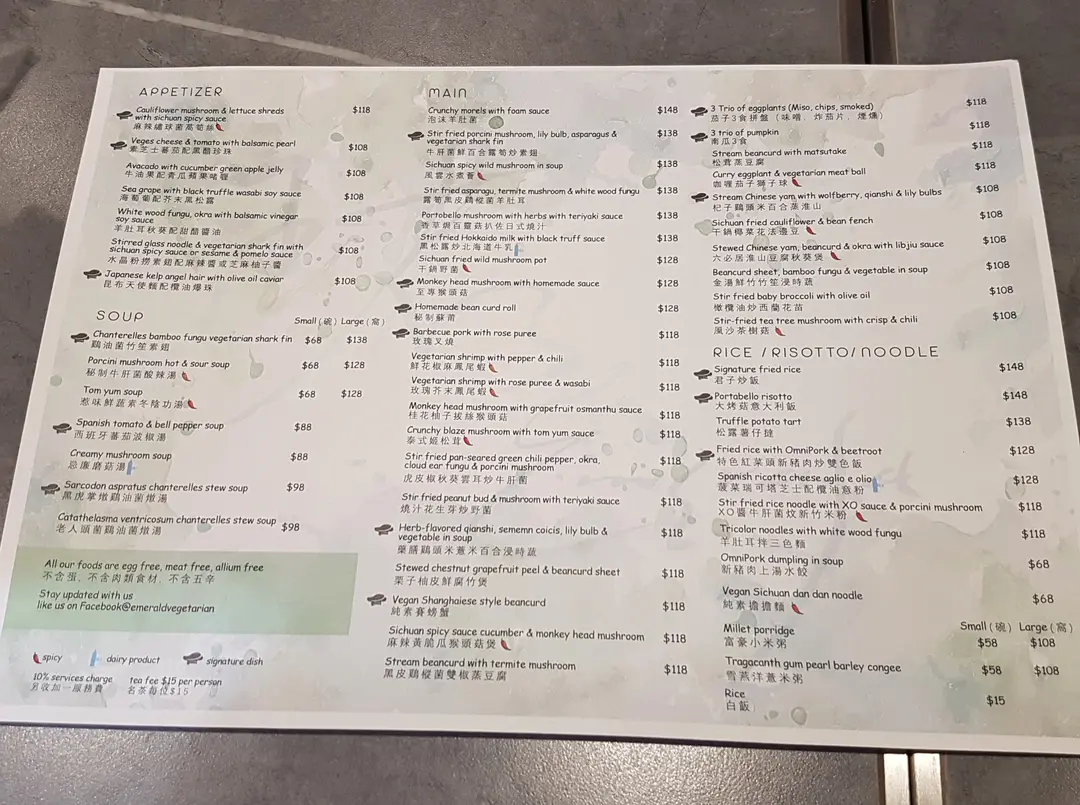 APPETIZER
Cauliflower mushroom & lettuce shreds
with sichuan spicy sauce $118
麻辣繡球菌萵筍絲
Veges cheese & tomato with balsamic pearl $108
素芝士蕃茄配黑醋珍珠
Avacado with cucumber green apple jelly $108
牛油果配青瓜蘋果啫喱
Sea grape with black truffle wasabi soy sauce $108
海葡萄配芥末黑松露
White wood fungu, okra with balsamic vinegar
soy sauce $108
羊肚耳秋葵配甜醋醬油
Stirred glass noodle & vegetarian shark fin with
sichuan spicy sauce or sesame & pomelo sauce $108
水晶粉撈素翅配麻辣醬或芝麻柚子醬
Japanese kelp angel hair with olive oil caviar $108
昆布天使麵配欖油爆珠
SOUP
Small (碗) Large (窩)
Chanterelles bamboo fungu vegetarian shark fin $68 $138
鷄油菌竹笙素翅
Porcini mushroom hot & sour soup $68 $128
秘制牛肝菌酸辣湯
Tom yum soup $68 $128
惹味鮮蔬素冬陰功湯
Spanish tomato & bell pepper soup $88
西班牙蕃茄波椒湯
Creamy mushroom soup $88
忌廉磨菇湯
Sarcodon aspratus chanterelles stew soup $98
黑虎掌燉鷄油菌燉湯
Catathelasma ventricosum chanterelles stew soup $98
老人頭菌鷄油菌燉湯
All our foods are egg free, meat free, allium free
不含蛋、不含肉類食材、不含五辛
Stay updated with us
like us on Facebook@emeraldvegetarian
spicy dairy product signature dish
10% services charge tea fee $15 per person
另收加一服務費 名茶每位$15
MAIN
Crunchy morels with foam sauce $148
泡沫羊肚菌
Stir fried porcini mushroom, lily bulb, asparagus &
vegetarian shark fin $138
牛肝菌鮮百合露筍炒素翅
Sichuan spicy wild mushroom in soup $138
風雲水煮薈
Stir fried asparagu, termite mushroom & white wood fungu $138
露筍黑皮鷄樅菌羊肚耳
Portobello mushroom with herbs with teriyaki sauce $138
香草焗百靈菇扒佐日式燒汁
Stir fried Hokkaido milk with black truff sauce $138
黑松露炒北海道牛乳
Sichuan fried wild mushroom pot $128
干鍋野菌
Monkey head mushroom with homemade sauce $128
至尊猴頭菇
Homemade bean curd roll $128
秘制酥莆
Barbecue pork with rose puree $118
玫瑰叉燒
Vegetarian shrimp with pepper & chili $118
鮮花椒麻鳳尾蝦
Vegetarian shrimp with rose puree & wasabi $118
玫瑰芥末鳳尾蝦
Monkey head mushroom with grapefruit osmanthu sauce $118
桂花柚子拔絲猴頭菇
Crunchy blaze mushroom with tom yum sauce $118
泰式姬松茸
Stir fried pan-seared green chili pepper, okra,
cloud ear fungu & porcini mushroom $118
虎皮椒秋葵雲耳炒牛肝菌
Stir fried peanut bud & mushroom with teriyaki sauce $118
燒汁花生芽炒野菌
Herb-flavored qianshi, sememn coicis, lily bulb &
vegetable in soup $118
藥膳鷄頭米薏米百合浸時蔬
Stewed chestnut grapefruit peel & beancurd sheet $118
栗子柚皮鮮腐竹煲
Vegan Shanghaiese style beancurd $118
純素賽螃蟹
Sichuan spicy sauce cucumber & monkey head mushroom $118
麻辣黃脆瓜猴頭菇煲
Stream beancurd with termite mushroom $118
黑皮鷄樅菌雙椒蒸豆腐
3 Trio of eggplants (Miso, chips, smoked) $118
茄子3食拼盤（味噌、炸茄片、煙燻）
3 trio of pumpkin $118
南瓜3食
Stream beancurd with matsutake $118
松茸蒸豆腐
Curry eggplant & vegetarian meat ball $118
咖喱茄子獅子球
Stream Chinese yam with wolfberry, qianshi & lily bulbs $108
杞子鷄頭米百合蒸淮山
Sichuan fried cauliflower & bean fench $108
干鍋椰菜花法邊豆
Stewed Chinese yam, beancurd & okra with libjiu sauce $108
六必居淮山豆腐秋葵煲
Beancurd sheet, bamboo fungu & vegetable in soup $108
金湯鮮竹竹笙浸時蔬
Stir fried baby broccoli with olive oil $108
橄欖油炒西蘭花苗
Stir-fried tea tree mushroom with crisp & chili $108
風沙茶樹菇
RICE /RISOTTO/NOODLE
Signature fried rice $148
君子炒飯
Portabello risotto $148
大烤菇意大利飯
Truffle potato tart $138
松露薯仔撻
Fried rice with OmniPork & beetroot $128
特色紅菜頭新豬肉炒雙色飯
Spanish ricotta cheese aglio e olio $128
菠菜瑞可塔芝士配欖油意粉
Stir fried rice noodle with XO sauce & porcini mushroom $118
XO醬牛肝菌炆新竹米粉
Tricolor noodles with white wood fungu $118
羊肚耳拌三色麵
OmniPork dumpling in soup $68
新豬肉上湯水餃
Vegan Sichuan dan dan noodle $68
純素擔擔麵
Small (碗) Large (窩)
Millet porridge $58 $108
富豪小米粥
Tragacanth gum pearl barley congee $58 $108
雪燕洋薏米粥
Rice $15
白飯